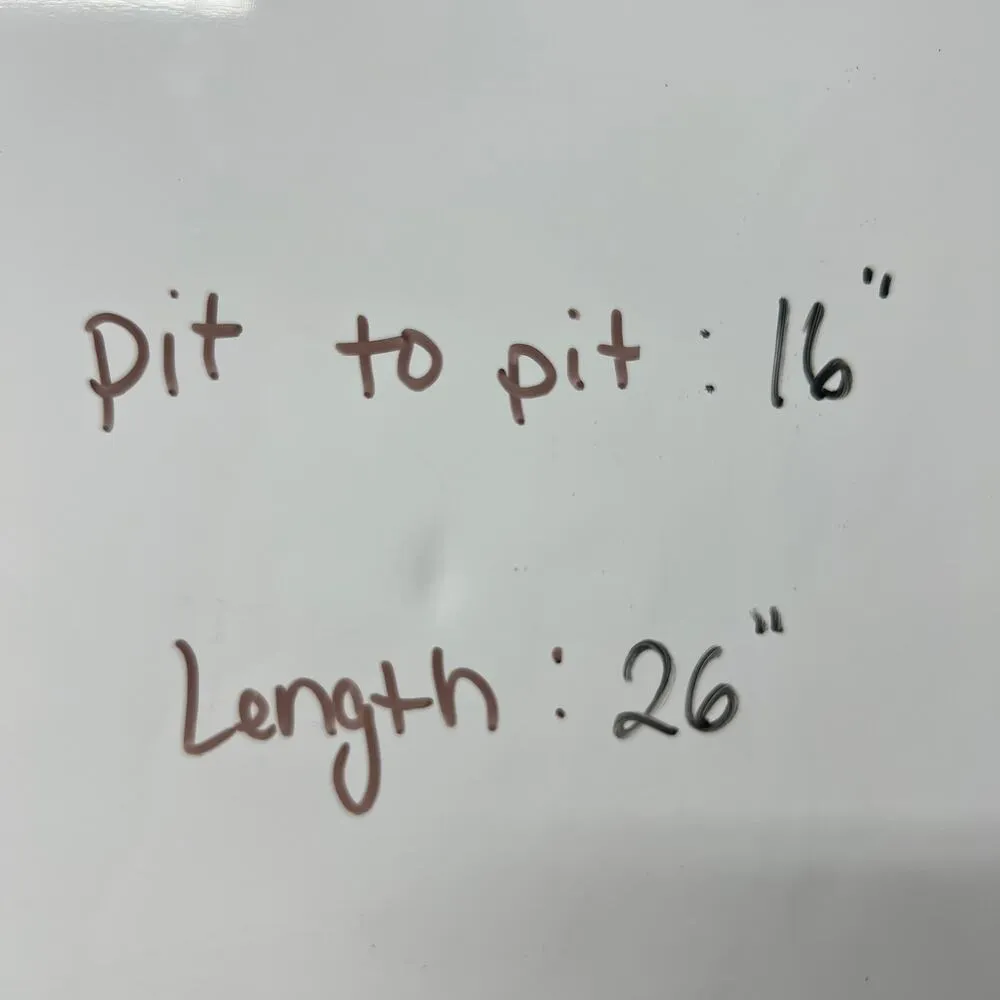 pit to pit : 16"
Length : 26"